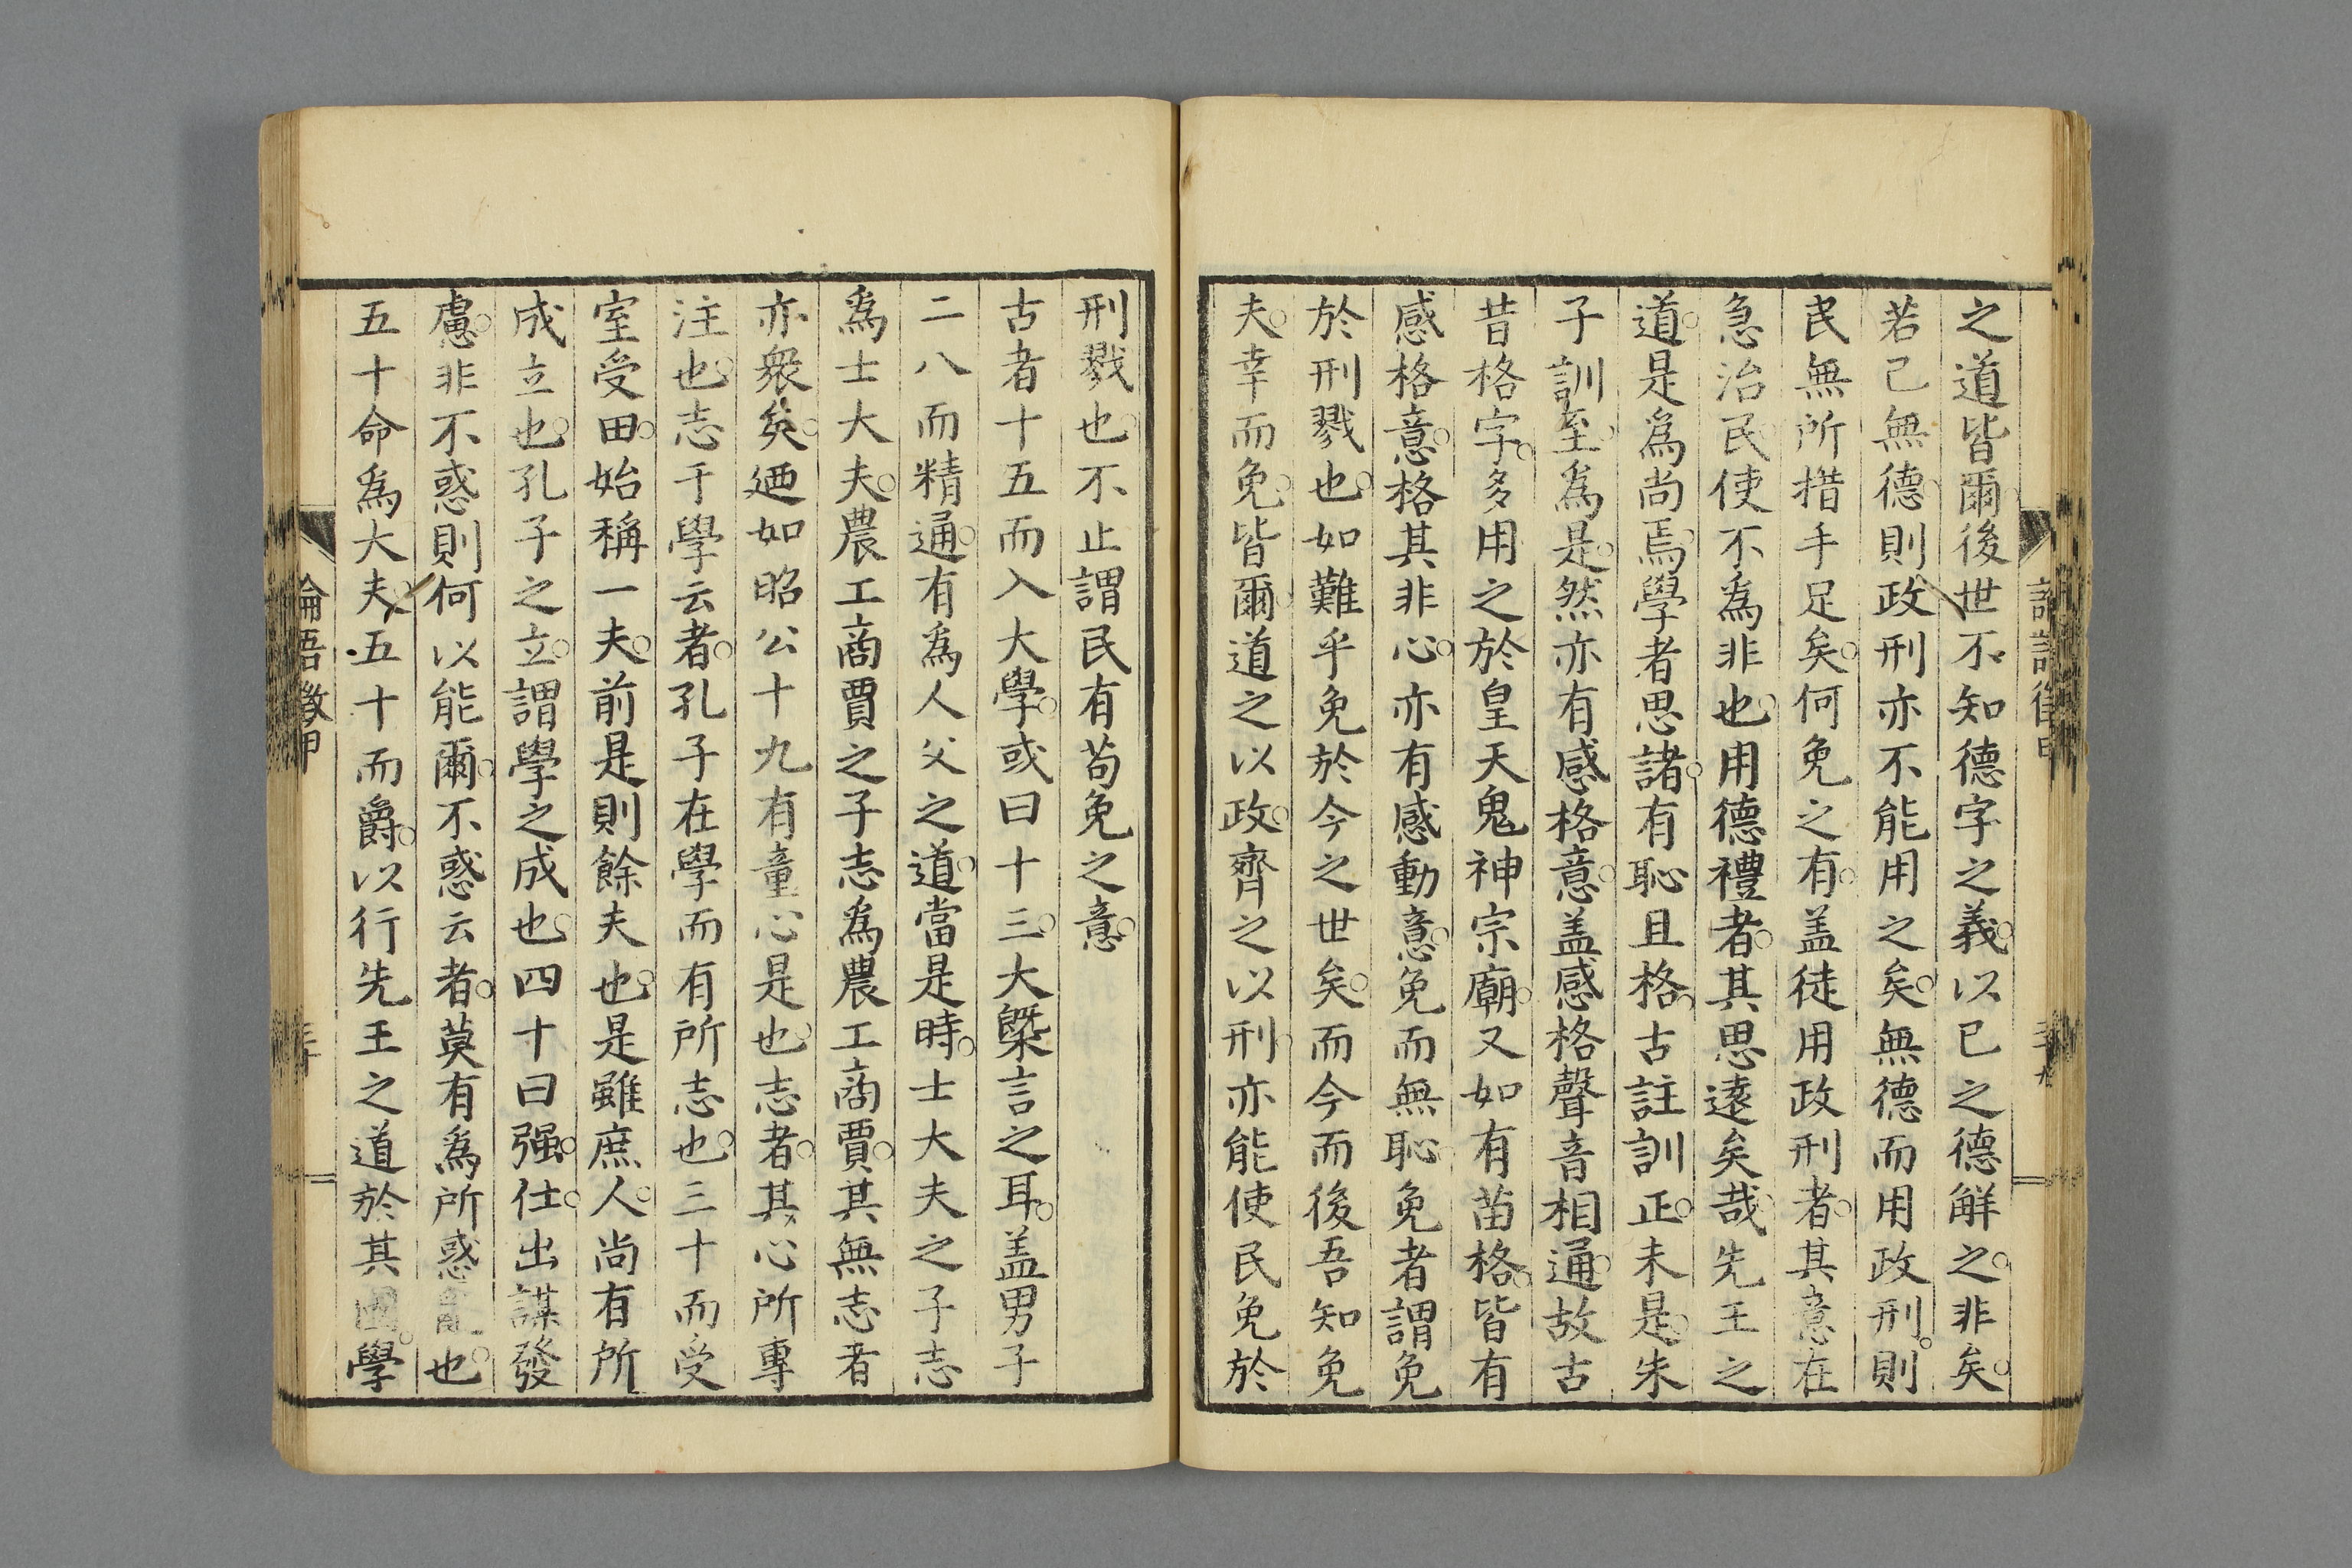 之道皆爾後世不知德字之義以已之德解之非矣
若己無德則政刑亦不能用之矣無德而用政刑則
民無所措手足矣何免之有盖徒用政刑者其意在
急治民使不為非也用德禮者其思遠矣哉先王之
道是爲尚焉學者思諸有恥且格古註訓正未是朱
子訓至爲是然亦有感格意盖感格聲音相通故古
昔格字多用之於皇天鬼神宗廟又如有苗格皆有
感格意格其非心亦有感動意免而無恥免者謂免
於刑戮也如難乎免於今之世矣而今而後吾知免
夫幸而免皆爾道之以政齊之以刑亦能使民免於
刑戮也不止謂民有苟免之意
古者十五而入大學或曰十三大槩言之耳盖男子
二八而精通有爲人父之道當是時士大夫之子志
爲士大夫農工商賈之子志爲農工商賈其無志者
亦衆矣廼如昭公十九有童心是也志者其心所專
注也志于學云者孔子在學而有所志也三十而受
室受田始稱一夫前是則餘夫也是雖庶人尚有所
成立也孔子之立謂學之成也四十曰强仕出謀發
慮非不惑則何以能爾不惑云者莫有爲所惑亂也
五十命爲大夫五十而爵以行先王之道於其國學
論語徵甲
三十